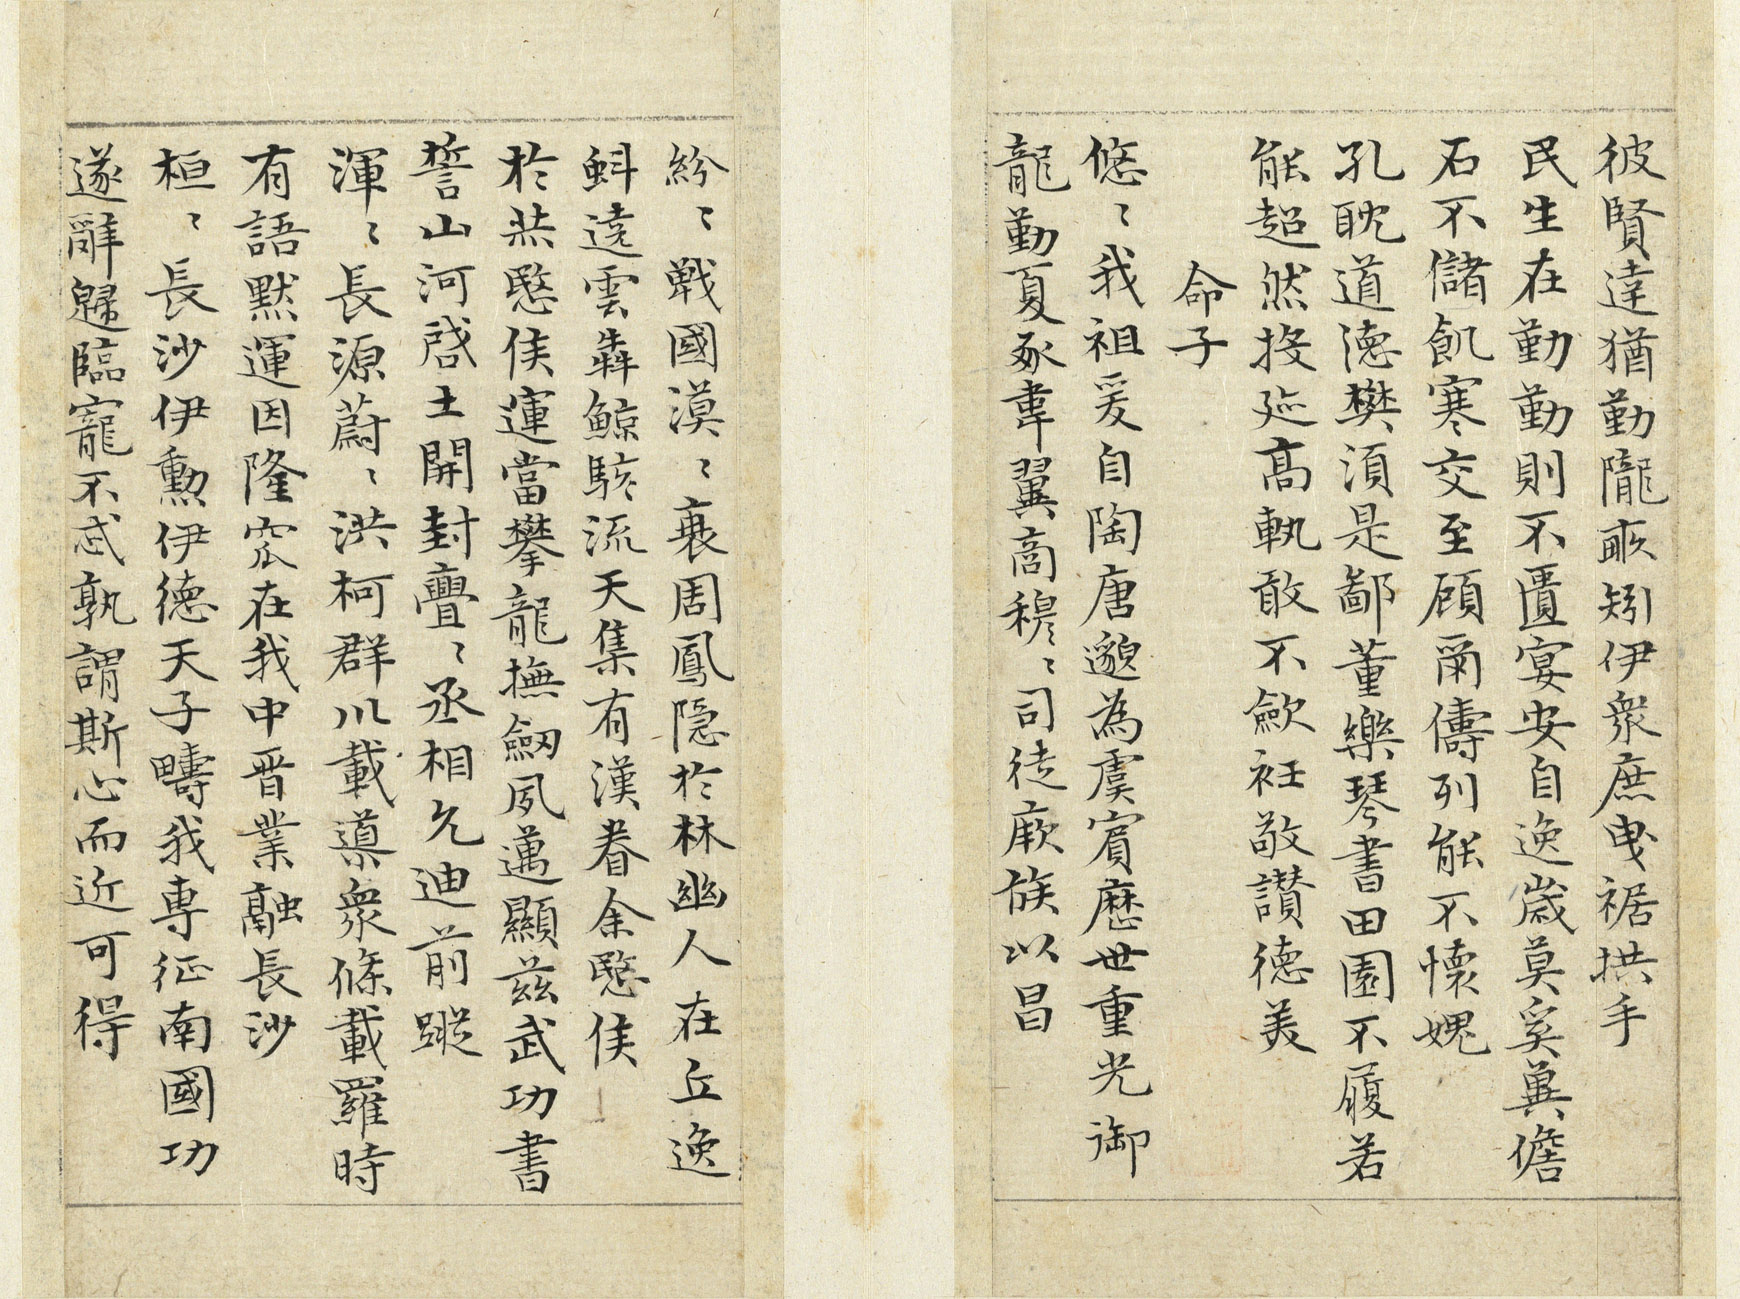 彼賢達猶勤隴畝矧伊衆庶曳裾拱手
民生在勤勤則不匱宴安自逸歲莫奚冀儋
石不儲飢寒交至顧爾儔列能不懷媿
孔耽道德樊須是鄙董樂琴書田園不履若
能超然投迹高軌敢不歛衽敬讃德美
命子
悠〻我祖爰自陶唐邈為虞賔歷世重光御
龍勤夏豕韋翼商穆〻司徒厥族以昌
紛〻戰國漠〻衰周鳳隱於林幽人在丘逸
蚪遶雲犇鯨駭流天集有漢眷余愍侯
於赫愍侯運當攀龍撫劒夙邁顯茲武功書
誓山河啓土開封亹〻丞相允迪前蹤
渾〻長源蔚〻洪柯群川載導衆條載羅時
有語默運因隆窊在我中晉業融長沙
桓〻長沙伊勲伊德天子疇我專征南國功
遂辭歸臨寵不忒孰謂斯心而近可得